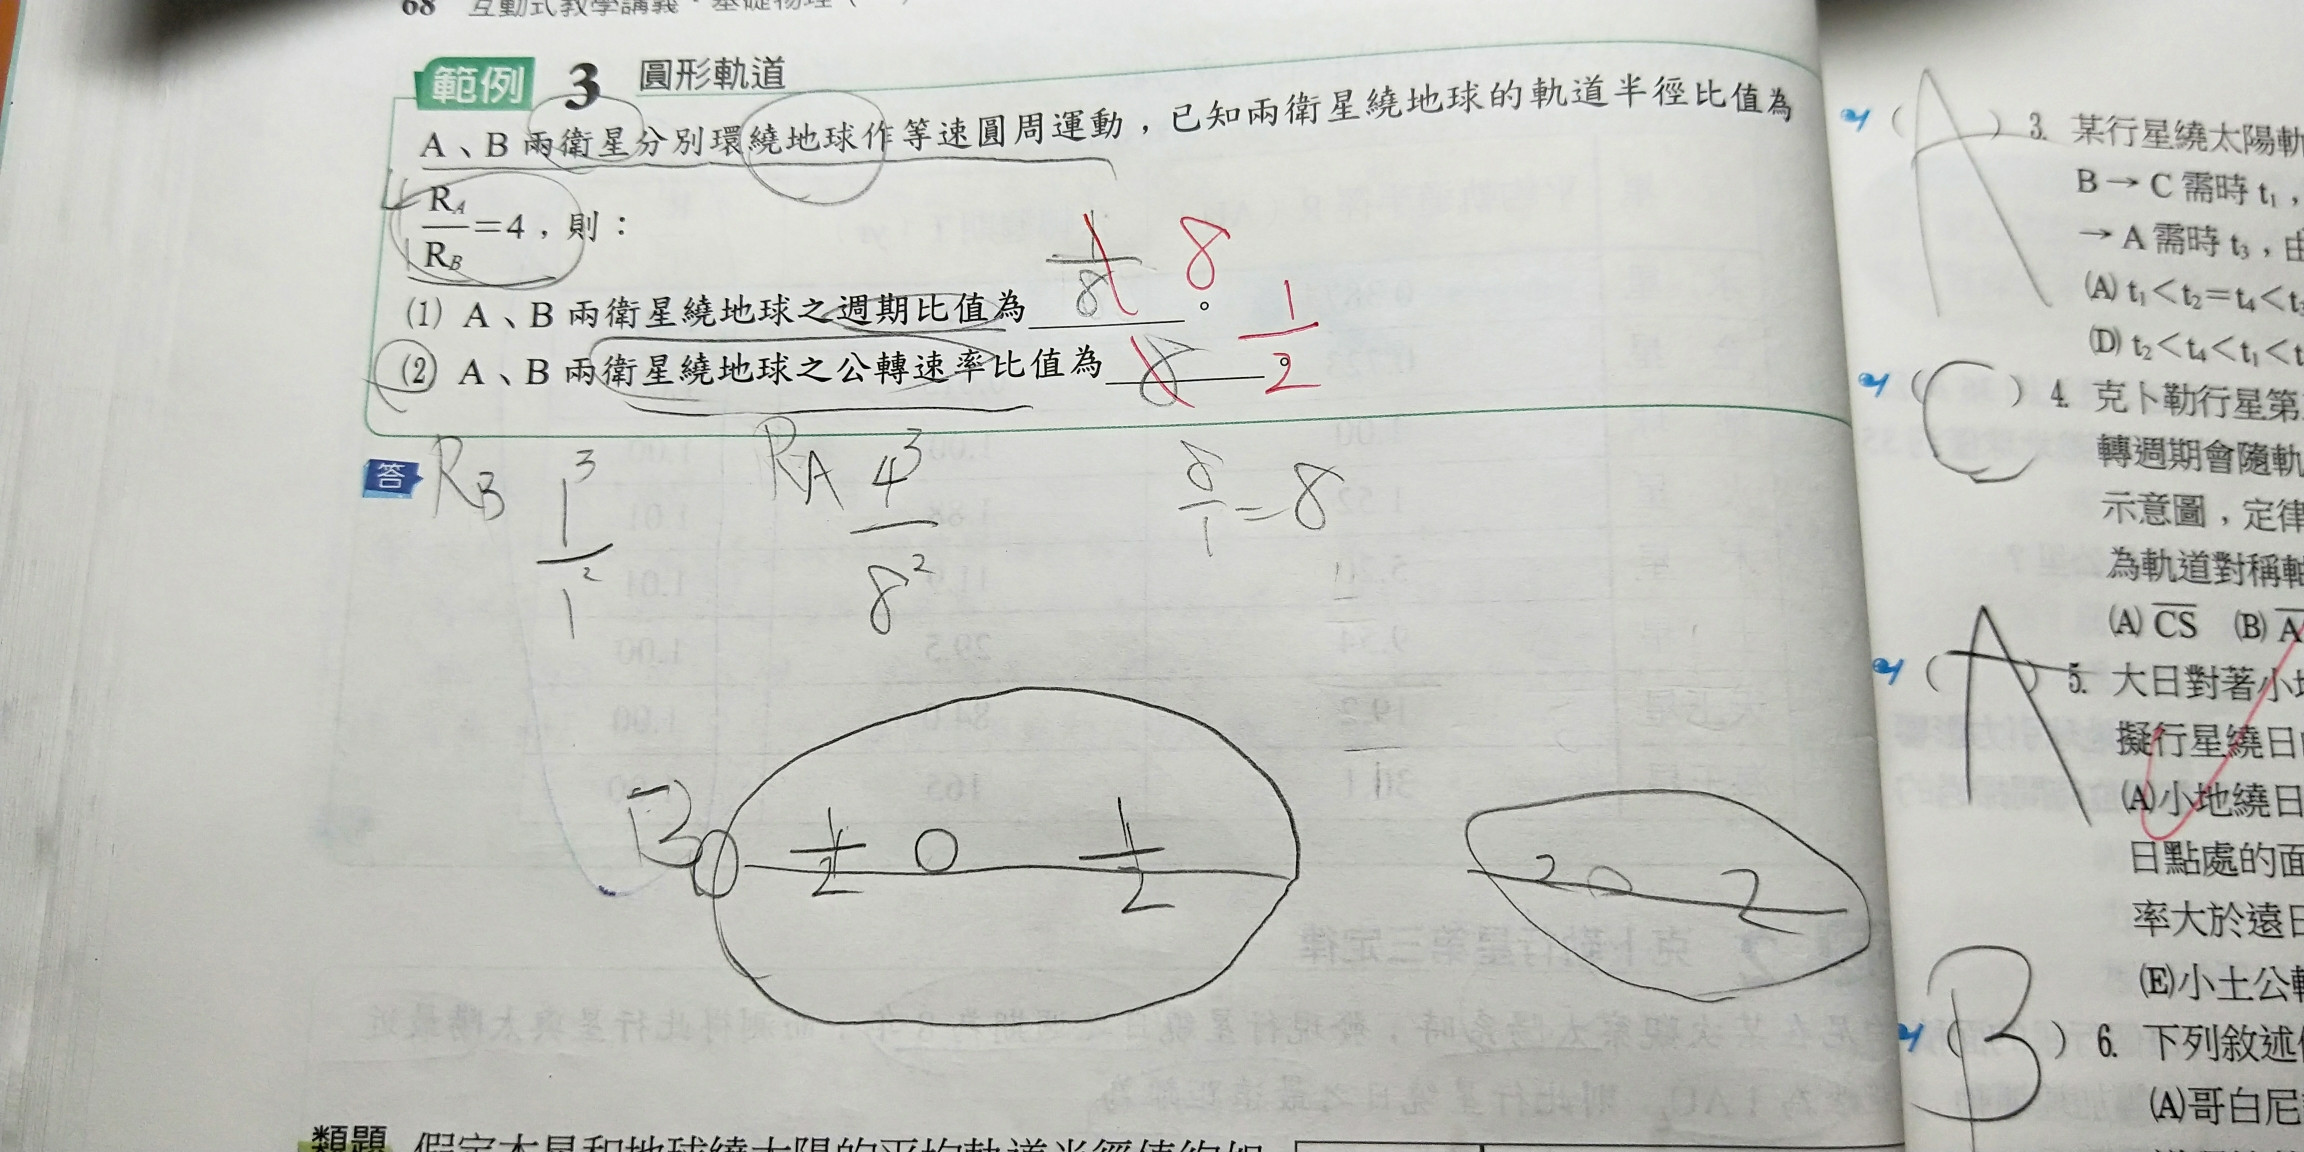 68 互動式教學講義．基礎物理（
範例 3 圓形軌道
A、B 兩衛星分別環繞地球作等速圓周運動，已知兩衛星繞地球的軌道半徑比值為
R_A/R_B=4，則：
1/8 8
(1) A、B 兩衛星繞地球之週期比值為______。
(2) A、B 兩衛星繞地球之公轉速率比值為______。
8 1/2
答 R_B 1³/1² R_A 4³/8² 8/1=8
B 1/2 1/2
2 2
類題 假定木星和地球繞太陽的平均軌道半徑值約如
A
( ) 3. 某行星繞太陽軌
B→C 需時 t₁，
→A 需時 t₃，由
(A) t₁<t₂=t₄<t₃
(D) t₂<t₄<t₁<t
C
( ) 4. 克卜勒行星第
轉週期會隨軌
示意圖，定律
為軌道對稱軸
(A) CS (B) A
A
( ) 5. 大日對著小地
擬行星繞日
(A)小地繞日
日點處的面
率大於遠日
(E)小土公轉
B
( ) 6. 下列敘述
(A)哥白尼